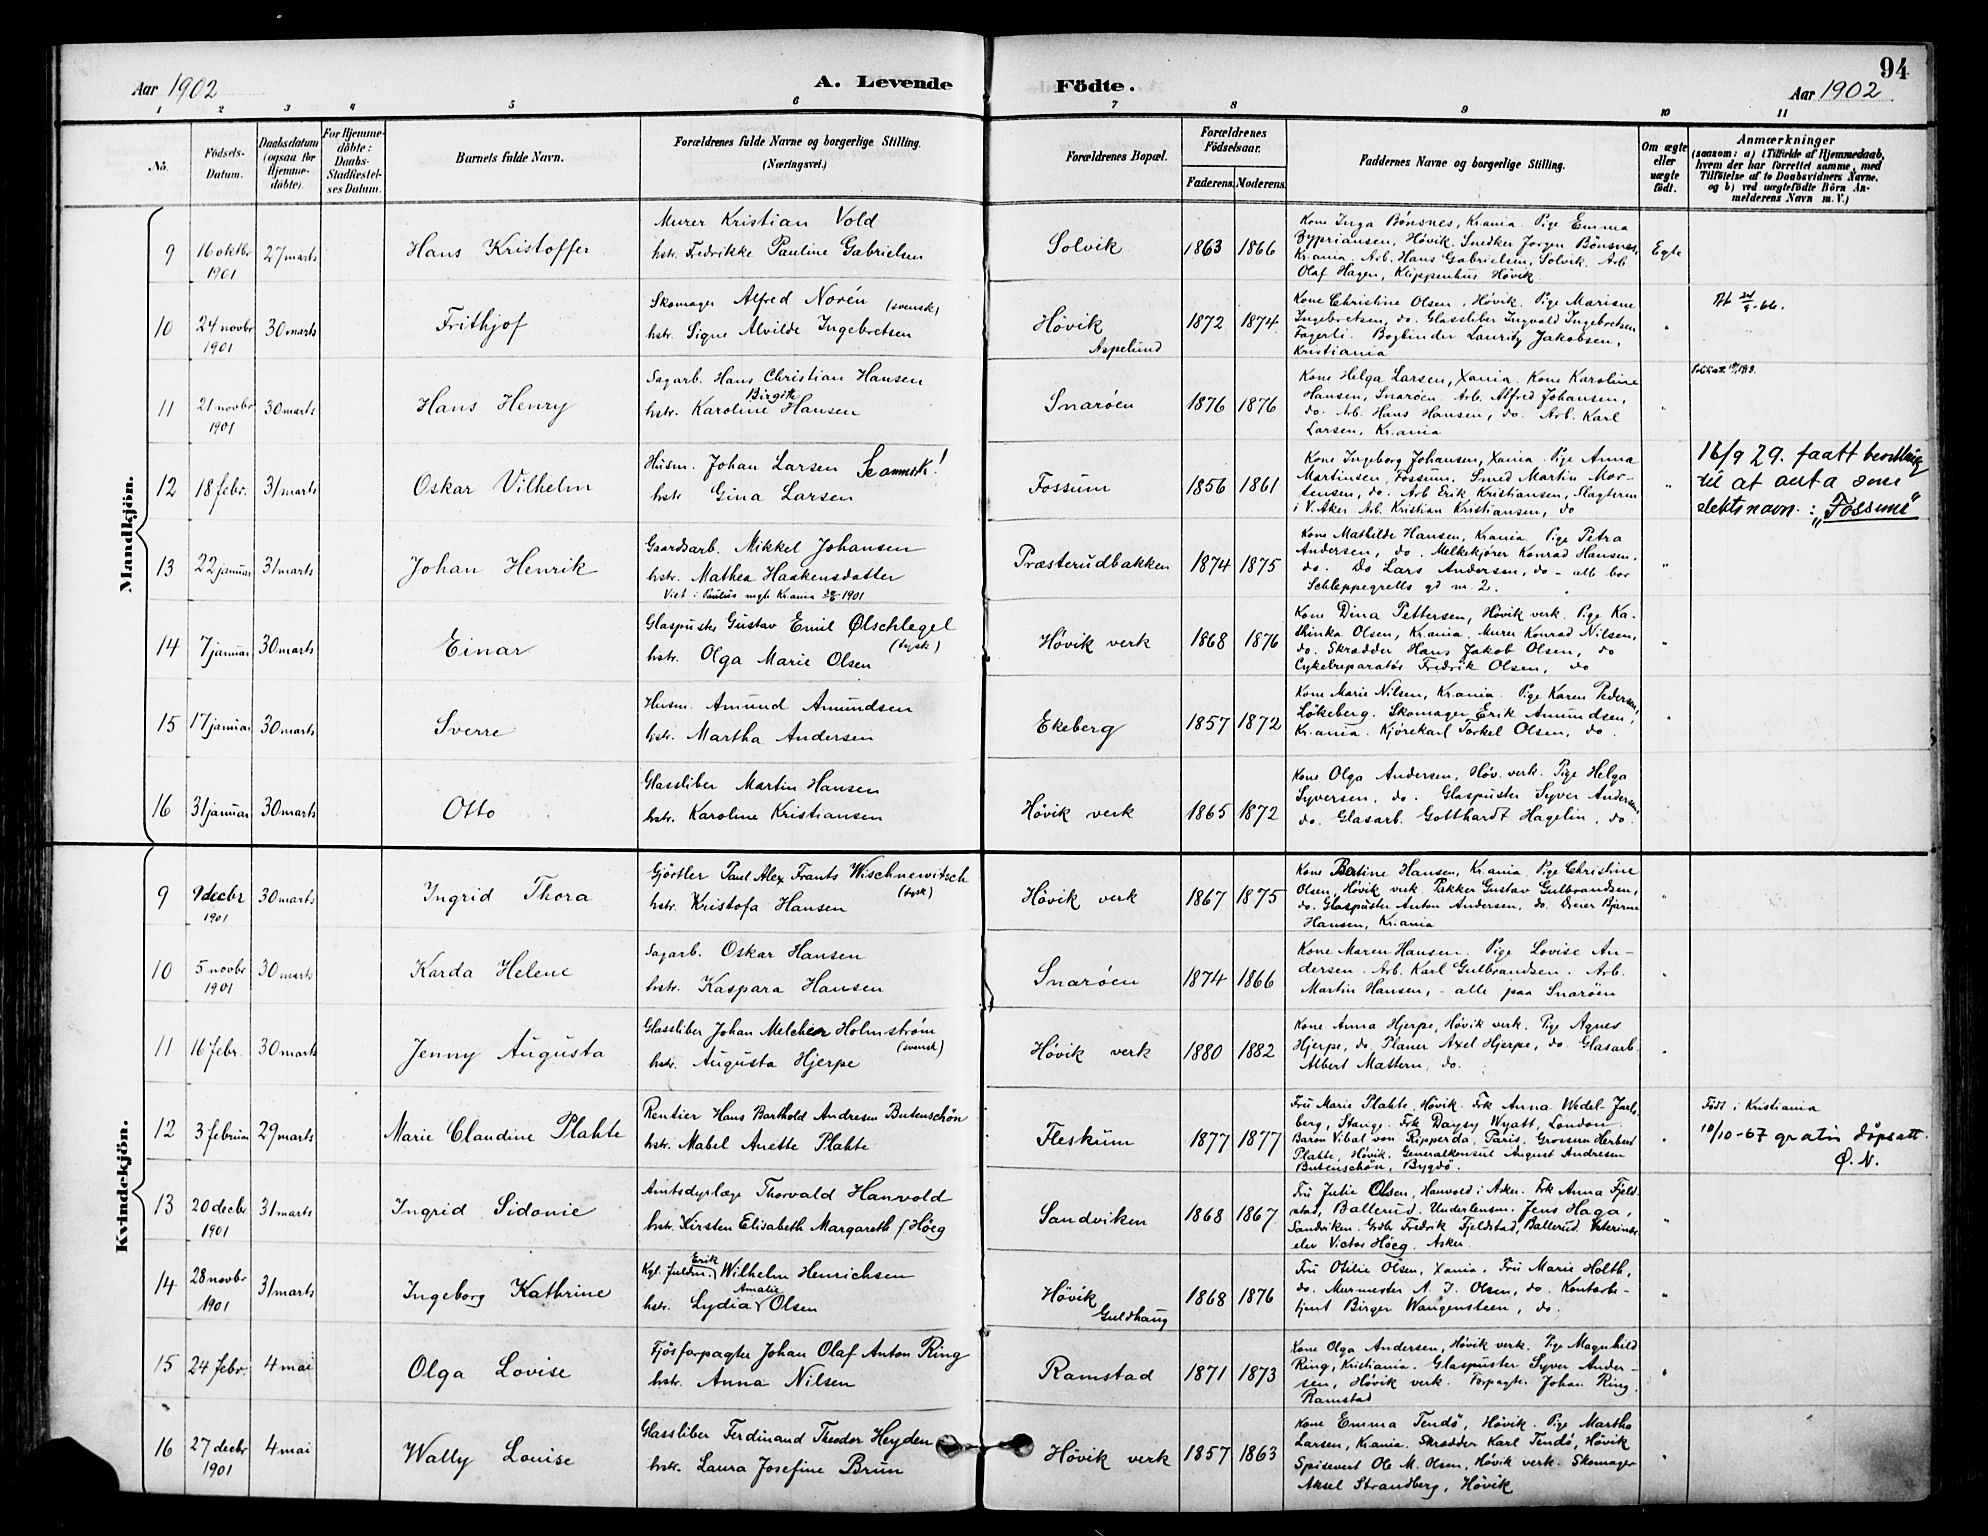 94
Aar 1902
A. Levende
Födte.
Aar 1902
1 2 3 4 5 6 7 8 9 10 11
No.
Födsels-
Datum.
Daabsdatum
(ogsaa for
Hjemme-
döbte).
For Hjemme-
döbte:
Daabs-
Stadfæstel-
ses Datum.
Barnets fulde Navn.
Forældrenes fulde Navne og borgerlige Stilling.
(Næringsvei.)
Forældrenes Bopæl.
Forældrenes
Födselsaar.
Faderens. Moderens.
Faddernes Navne og borgerlige Stilling.
Om ægte
eller
uægte
födt.
Anmærkninger
(saasom: a) i Tilfælde af Hjemmedaab,
hvem der har forrettet samme, med
Tilföielse af to Daabsvidners Navne,
og b) ved uægtefödte Börn An-
melderens Navn m. V.)
Mandkjön.
9
16 oktbr
1901
27 marts
Hans Kristoffer
Murer Kristian Vold
hstr. Fredrikke Pauline Gabrielsen
Solvik
1863
1866
Kone Inga Bönsnes, Kr.ania. Pige Emma
Zypriansen, Hövik. Snedker Jorgen Bönsnes,
Kr.ania. Arb. Hans Gabrielsen, Solvik. Arb
Olaf Hagen, Klippenhus Hövik
Egte
10
24 novbr
1901
30 marts
Frithjof
Skomager Alfred Norén (svensk)
hstr. Signe Alvilde Ingebretsen
Hövik
Aspelund
1872
1874
Kone Christine Olsen, Hövik. Pige Mariane
Ingebretsen, do. Glassliber Ingvald Ingebretsen
Fagerli. Bogbinder Lauritz Jakobsen,
Kristiania
"
11
21 novbr
1901
30 marts
Hans Henry
Sagarb. Hans Christian Hansen
Birgitte
hstr. Karoline Hansen
Snaröen
1876
1876
Kone Helga Larsen, Xania. Kone Karoline
Hansen, Snaröen. Arb. Alfred Johansen,
do. Arb. Hans Hansen, do. Arb. Karl
Larsen, Kr.ania
"
12
18 febr.
31 marts
Oskar Vilhelm
Husm. Johan Larsen Se anmerk!
hstr Gina Larsen
Fossum
1856
1861
Kone Ingeborg Johansen, Xania. Pige Anna
Martinsen, Fossum. Smed Martin Mor-
tensen, do. Arb Erik Kristiansen, Slagteren
i V. Aker Arb. Kristian Kristiansen, do
"
16/9 29. faatt bevilling
til at anta som
slektsnavn: „Fossum"
13
22 januar
31 marts
Johan Henrik
Gaardsarb. Mikkel Johansen
hstr. Mathea Haakensdatter
Viet i Paulus mgh. Kr.ania 1901
Præsterudbakken
1874
1875
Kone Mathilde Hansen, Krania Pige Petra
Andersen, do. Melkekjører Konrad Hansen,
do. Do Lars Andersen, do - alle bor
Schleppegrells gd nr. 2.
"
14
7 januar
30 marts
Einar
Glaspuster Gustav Emil Ølschlegel
(tysk)
hstr. Olga Marie Olsen
Hövik verk
1868
1876
Kone Dina Pettersen, Hövik verk. Pige Ka-
thinka Olsen, Kr.ania. Murer Konrad Nilsen,
do. Skrædder Hans Jakob Olsen, do
Cykelreparatör Fredrik Olsen, do
"
15
17 januar
30 marts
Sverre
Husm. Amund Amundsen
hstr. Martha Andersen
Ekeberg
1857
1872
Kone Marie Nilsen, Kr.ania. Pige Karen Pedersen,
Lökeberg. Skomager Erik Amundsen,
Kr.ania. Kjörekarl Torkel Olsen, do.
"
16
31 januar
30 marts
Otto
Glassliber Martin Hansen
hstr. Karoline Kristiansen
Hövik verk
1865
1872
Kone Olga Andersen, Höv. verk. Pige Helga
Syversen, do. Glaspuster Syver Andersen,
do. Glasarb. Gotthardt Hagelin, do.
Kvindekjön.
9
9 decbr
1901
30 marts
Ingrid Thora
Gjørtler Paul Alex Frants Wischnewitsch
(tysk)
hstr. Kristofa Hansen
Hövik verk
1867
1875
Kone Bertine Hansen, Kr.ania. Pige Christine
Olsen, Hövik verk Pakker Gustav Gulbrandsen,
do. Glaspuster Anton Andersen, do. Dreier Bjarne
Hansen, Kr.ania
"
10
5 novbr
1901
30 marts
Karda Helene
Sagarb. Oskar Hansen
hstr. Kaspara Hansen
Snaröen
1874
1866
Kone Maren Hansen. Pige Lovise An-
dersen. Arb. Karl Gulbrandsen. Arb.
Martin Hansen, - alle paa Snaröen
"
11
16 febr.
30 marts
Jenny Augusta
Glassliber Johan Melchior Holmström
(svensk)
hstr. Augusta Hjerpe
Hövik verk
1880
1882
Kone Anna Hjerpe, Hövik verk. Pige Agnes
Hjerpe, do. Planer Axel Hjerpe, do. Glasarb.
Albert Mattern, do.
"
12
3 februar
29 marts
Marie Claudine Plahte
Rentier Hans Barthold Andresen Butenschön
hstr. Mabel Anette Plahte
Fleskum
1877
1877
Fru Marie Plahte, Hövik. Frk Anna Wedel-Jarls-
berg, Stange. Frk Daysy Wyatt, London.
Baron Vibal von Ripperda, Paris, Grosserer Herbert
Plahte, Hövik. Generalkonsul August Andresen
Butenschön, Bygdö.
"
Födt i Kristiania
10/10-67 gratis dåpsatt.
Ø.N.
13
20 decbr
1901
31 marts
Ingrid Sidonie
Amtsdyrlæge Thorvald Hanvold
hstr. Kirsten Elisabeth Margareth f. Höeg
Sandviken
1868
1867
Fru Julie Olsen, Hanvold i Asker. Frk Anna Fjeld-
stad, Ballerud. Underlensm. Jens Haga,
Sandviken. Grdbr Fredrik Fjeldstad, Ballerud. Veterinær-
elev Victor Höeg, Asker.
"
14
28 novbr
1901
31 marts
Ingeborg Kathrine
Erik
Kgl. fuldm. Wilhelm Henrichsen
Amalie
hstr. Lydia Olsen
Hövik
Guldhaug
1868
1876
Fru Otilie Olsen, Xania. Fru Marie Holth,
do. Murmester A. J. Olsen, do. Kontorbe-
tjent Birger Wangensteen, do.
"
15
24 febr.
4 mai
Olga Lovise
Fjösforpagter Johan Olaf Anton Ring
hstr. Anna Nilsen
Ramstad
1871
1873
Kone Olga Andersen, Hövik verk. Pige Magnhild
Ring, Kristiania. Glaspuster Syver Ander-
sen, Hövik verk. Forpagter Johan Ring,
Ramstad
"
16
27 decbr
1901
4 mai
Wally Louise
Glassliber Ferdinand Theodor Heyden
hstr. Laura Josefine Brun
Hövik verk
1857
1863
Kone Emma Tendö, Hövik. Pige Martha
Larsen, Kr.ania. Skrædder Karl Tendö, Hövik
Spisevert Ole M. Olsen, Hövik verk. Skomager
Aksel Strandberg, Hövik